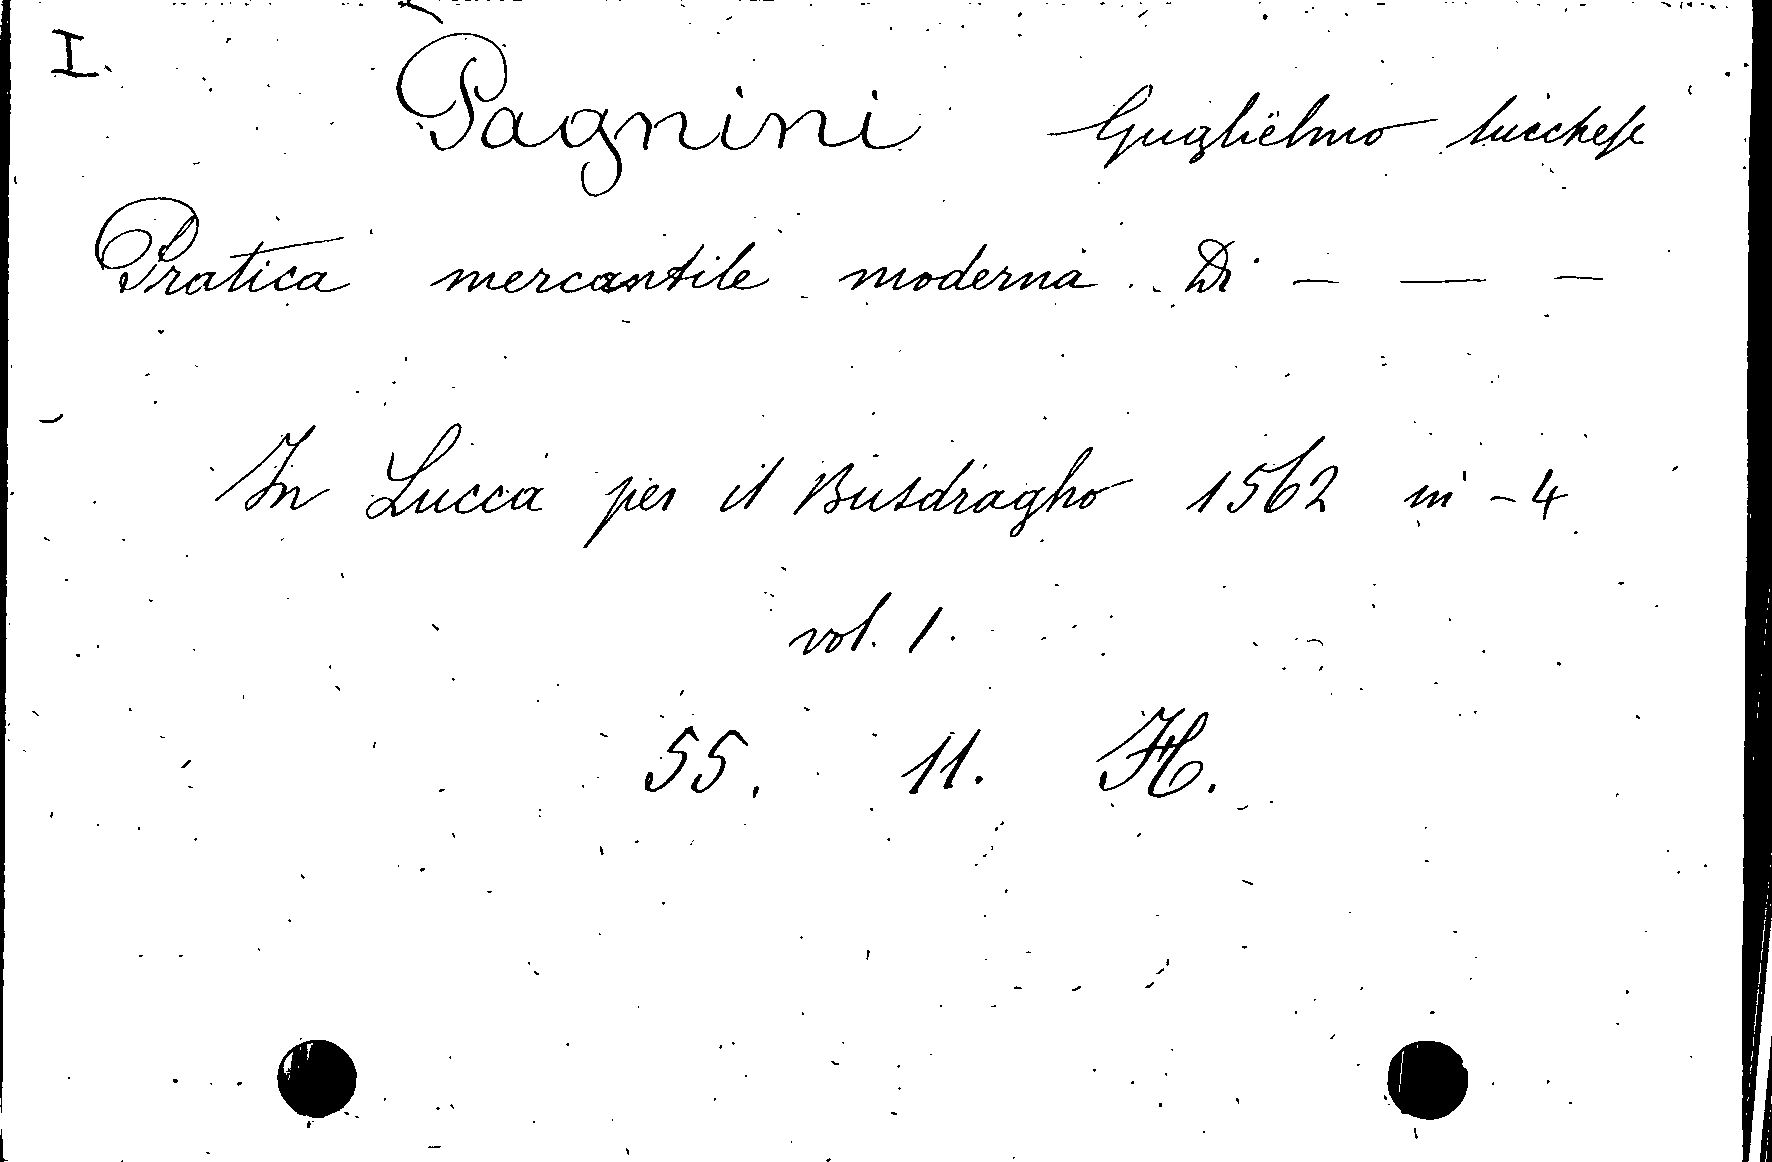 I.
Pagnini Guglielmo lucchese
Pratica mercantile moderna. Di - — -
In Lucca per il Busdragho 1562 in -4
vol. 1.
55. 11. H.